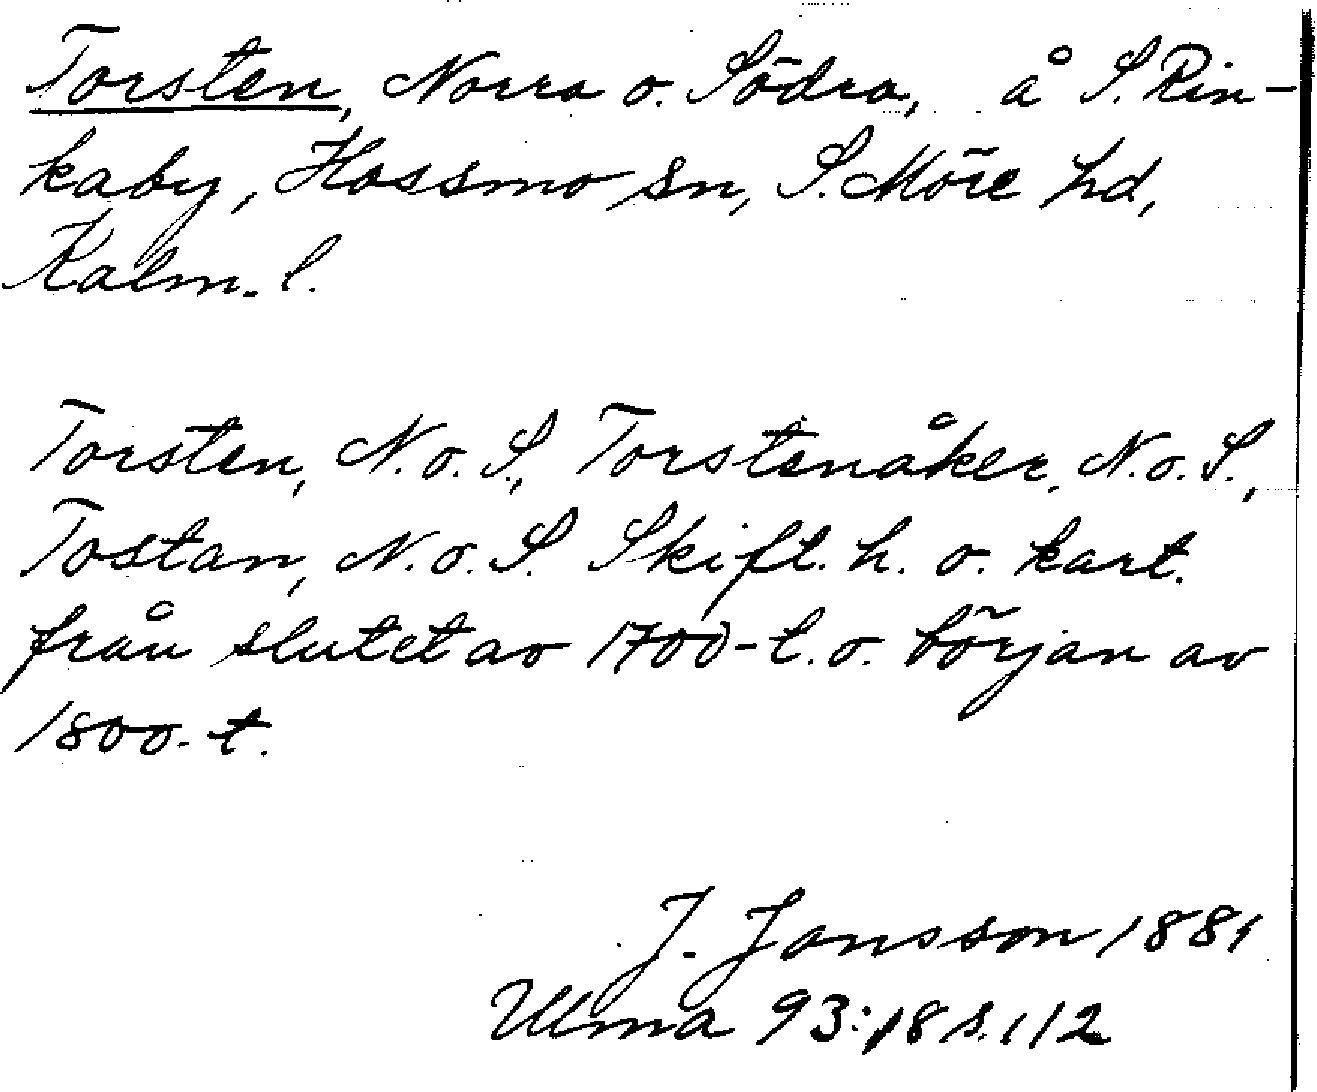 Torsten, Norra o. Södra, å S. Rin-
kaby, Hossmo sn, S. Möre hd,
Kalm. l.
Torsten, N. o. S., Torstenåker, N. o. S.,
Tostan, N. o. S. Skift. h. o. kart.
från slutet av 1700-t. o. början av
1800-t.
J. Jansson 1881
Ulma 93:18 s. 112